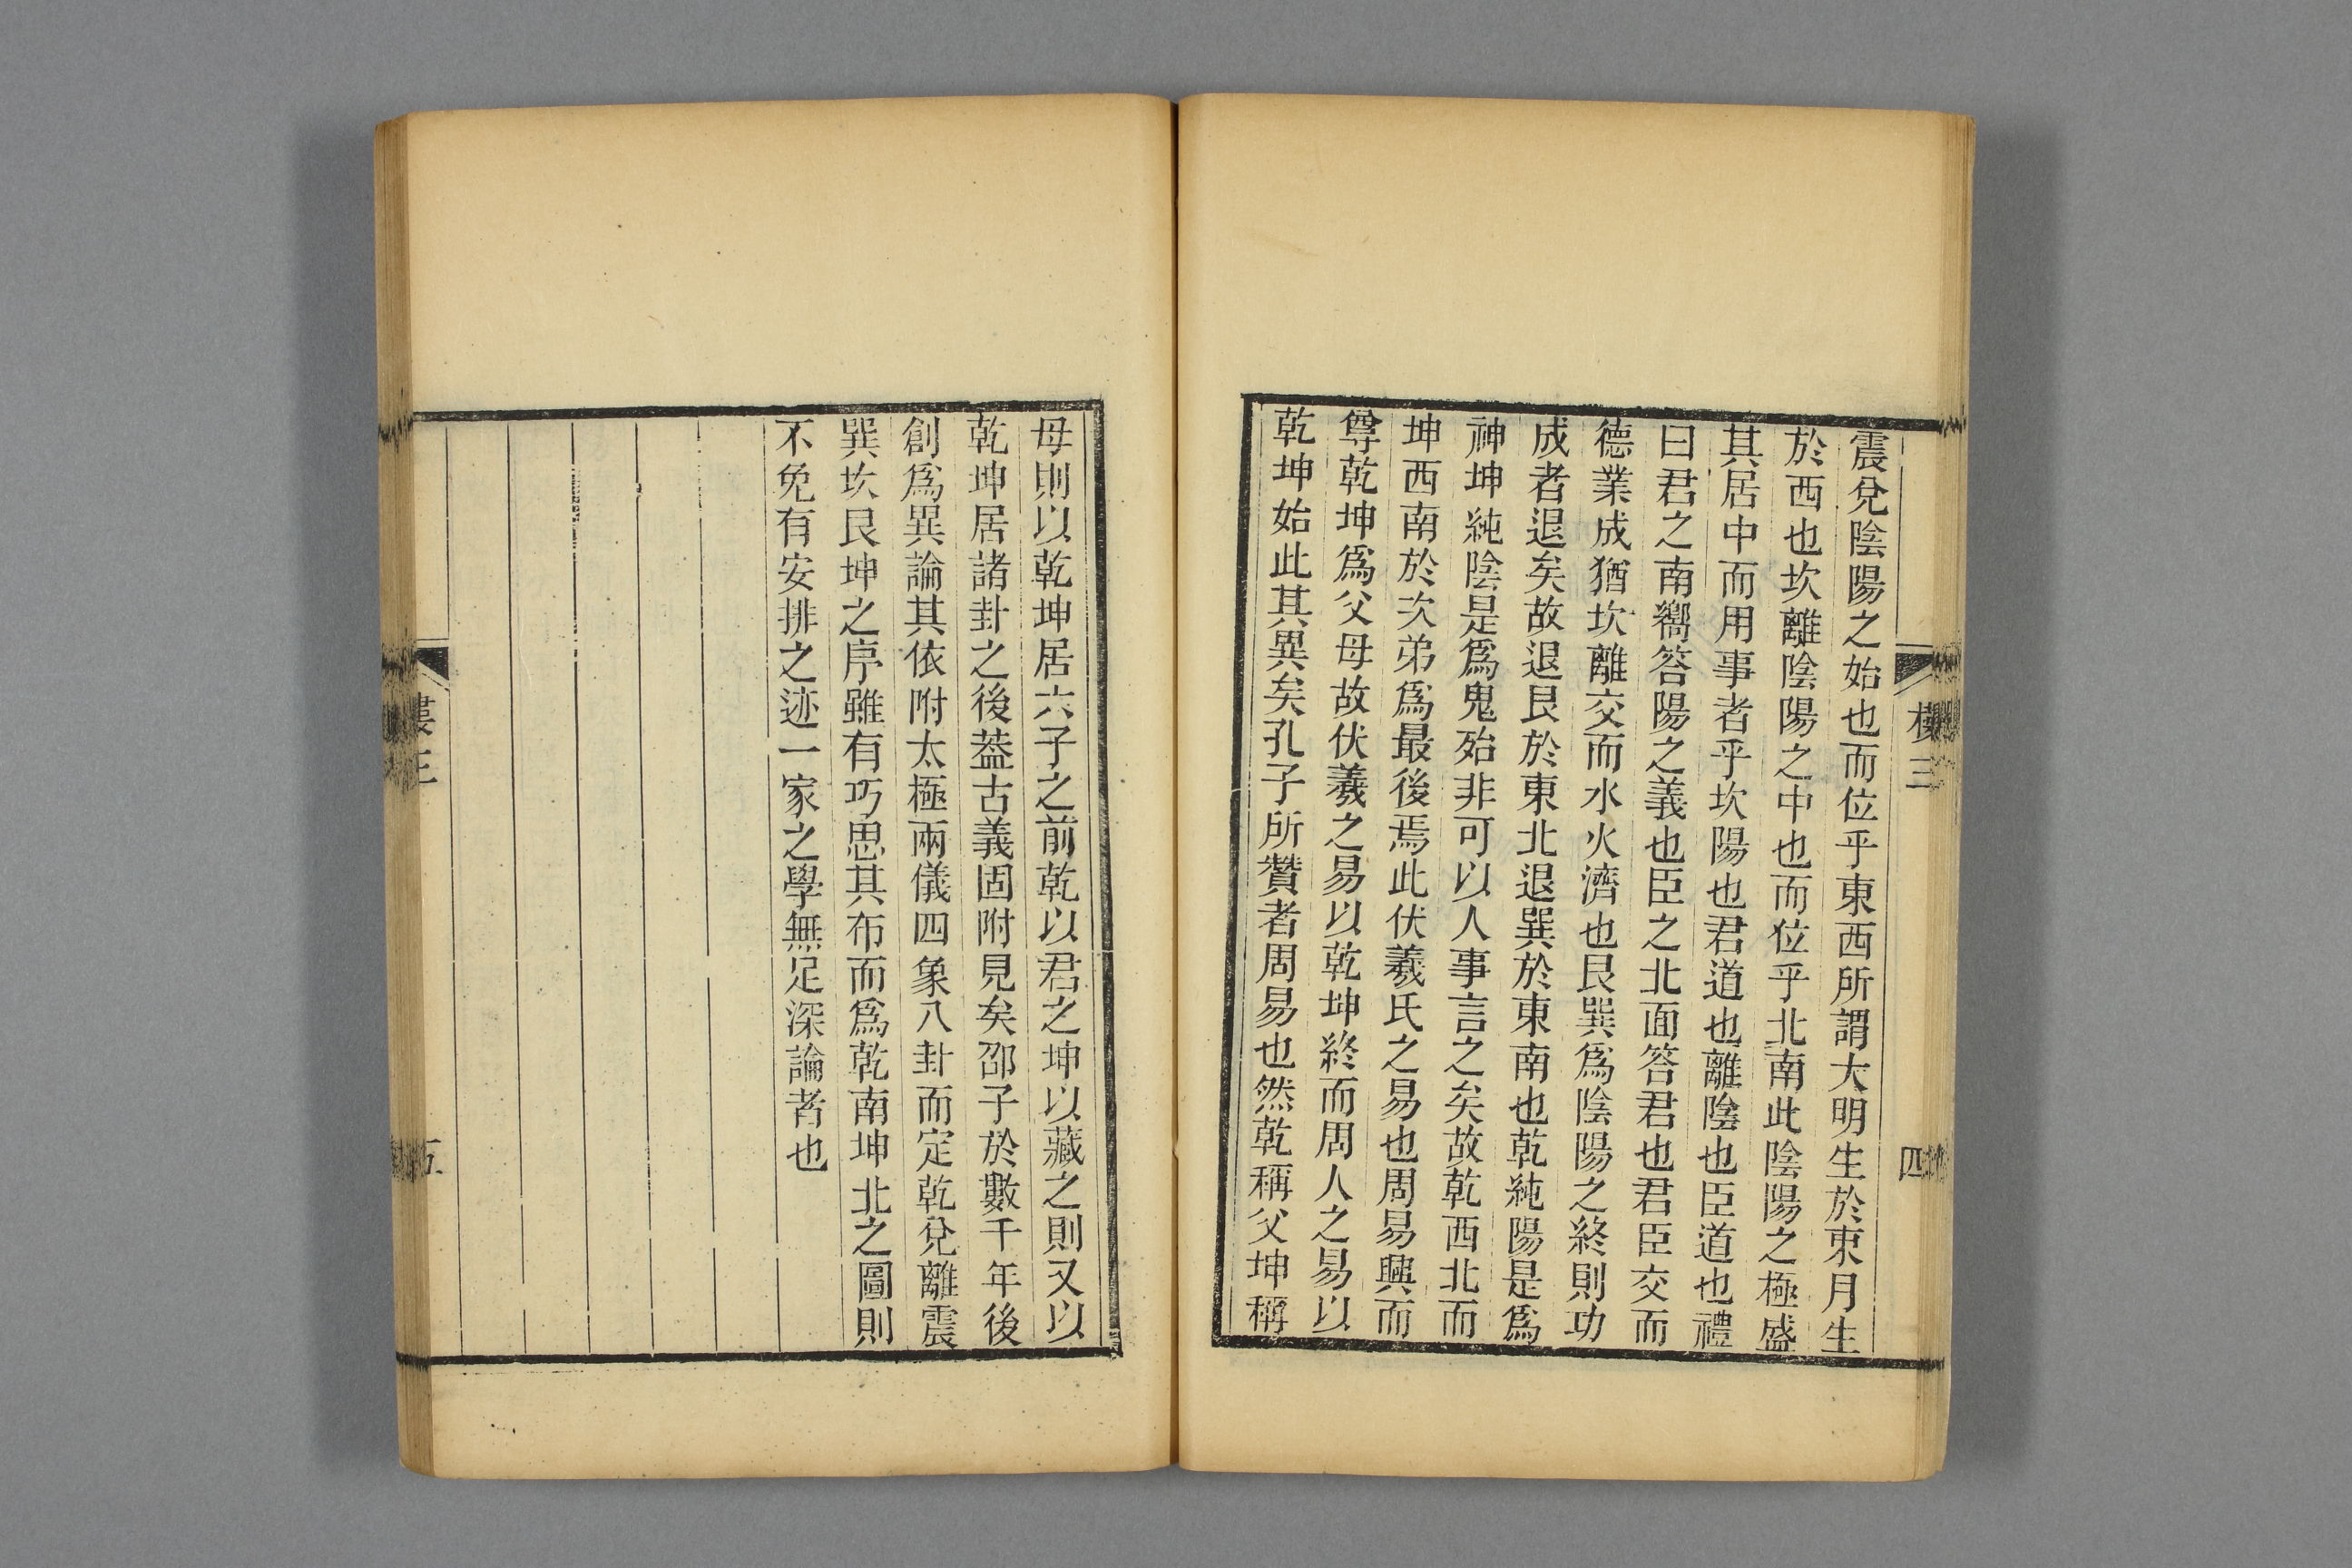 震兌陰陽之始也而位乎東西所謂大明生於東月生
於西也坎離陰陽之中也而位乎北南此陰陽之極盛
其居中而用事者乎坎陽也君道也離陰也臣道也禮
曰君之南嚮答陽之義也臣之北面答君也君臣交而
德業成猶坎離交而水火濟也艮巽爲陰陽之終則功
成者退矣故退艮於東北退巽於東南也乾純陽是爲
神坤純陰是爲鬼殆非可以人事言之矣故乾西北而
坤西南於次弟爲最後焉此伏羲氏之易也周易興而
尊乾坤爲父母故伏羲之易以乾坤終而周人之易以
乾坤始此其異矣孔子所贊者周易也然乾稱父坤稱
三
四
母則以乾坤居六子之前乾以君之坤以藏之則又以
乾坤居諸卦之後葢古義固附見矣邵子於數千年後
創爲異論其依附太極兩儀四象八卦而定乾兌離震
巽坎艮坤之序雖有巧思其布而爲乾南坤北之圖則
不免有安排之迹一家之學無足深論者也
五